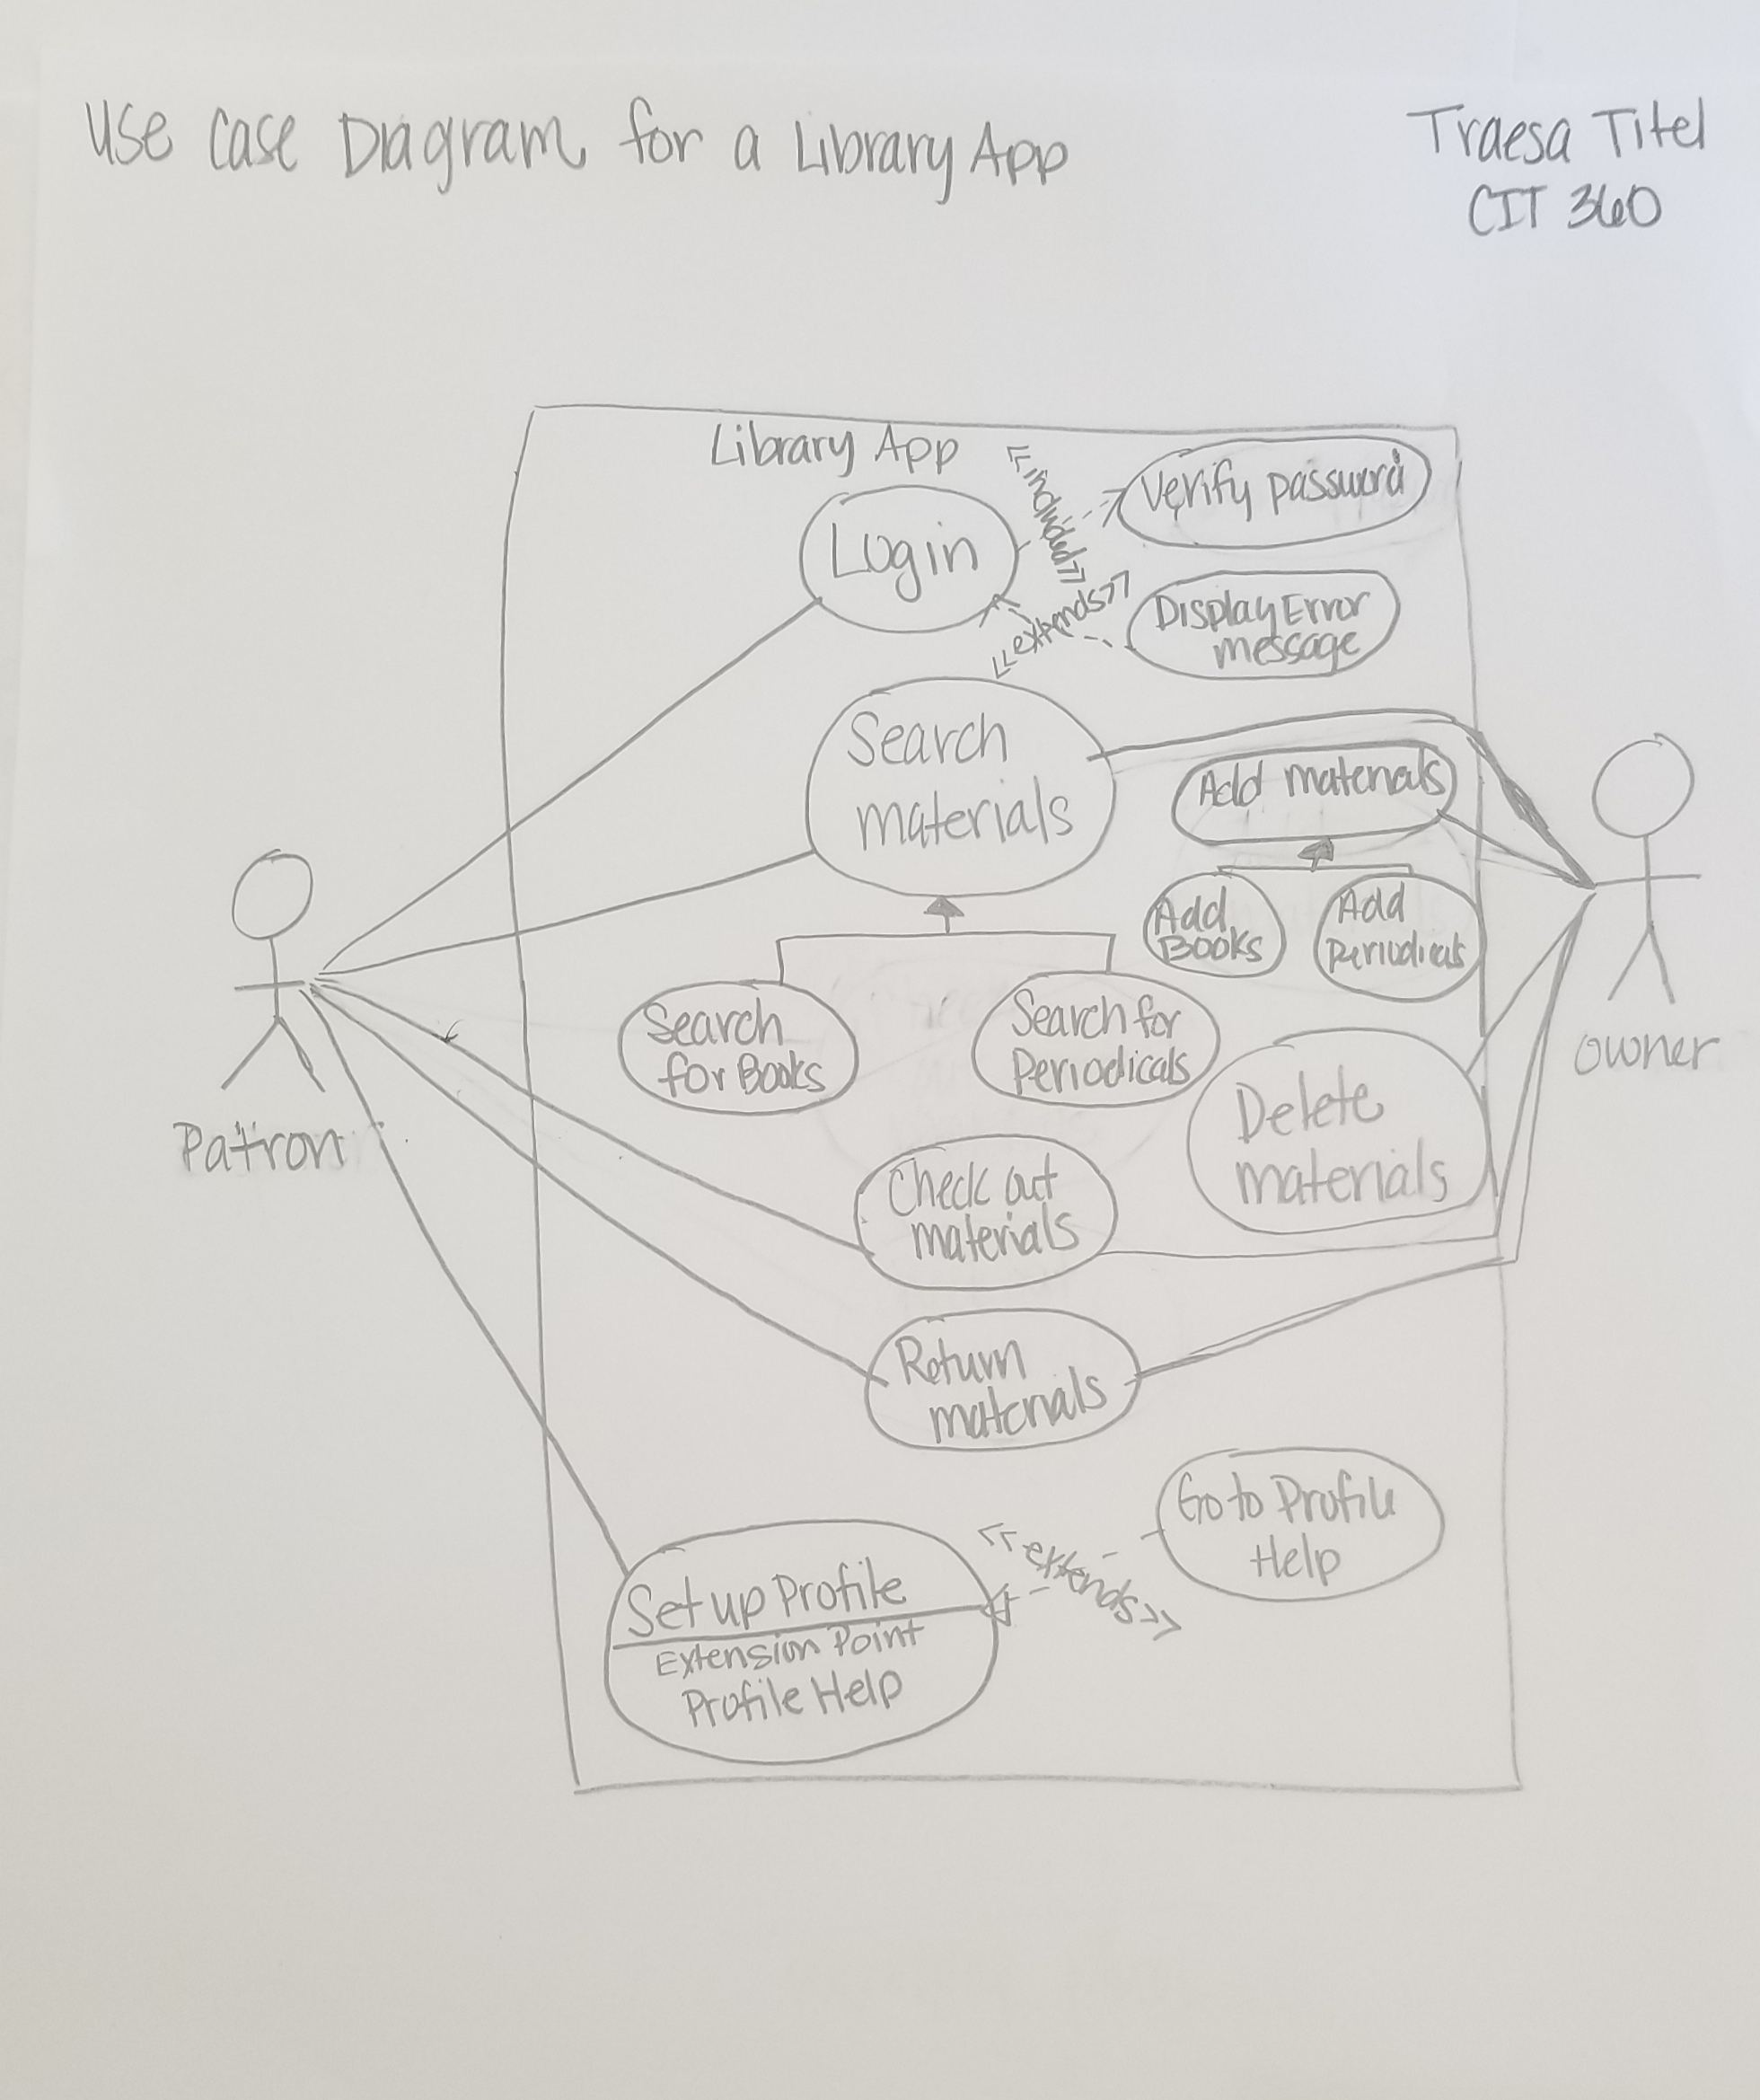 Use Case Diagram for a Library App
Traesa Titel
CIT 360
Library App
Login
<<included>>
Verify password
<<extends>>
Display Error
message
Search
materials
Add materials
Add
Books
Add
Periodicals
Search
for Books
Search for
Periodicals
Delete
materials
Patron
owner
Check out
materials
Return
materials
Go to Profile
Help
<<extends>>
Set up Profile
Extension Point
Profile Help